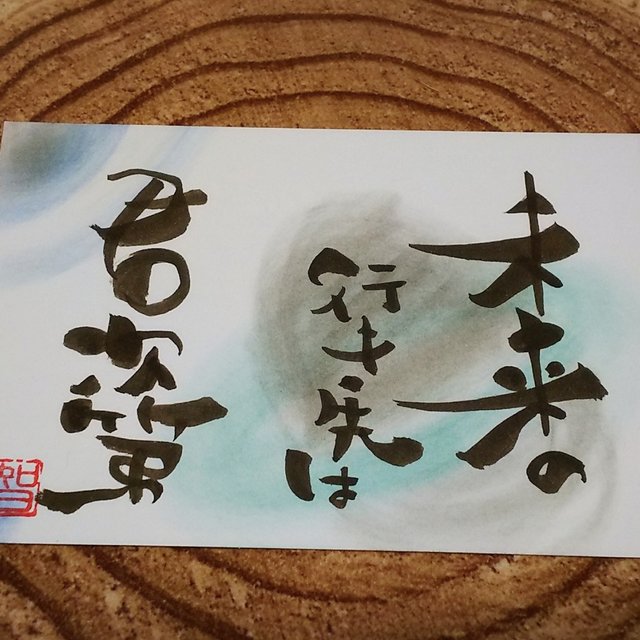 未来の
行き先は
君次第